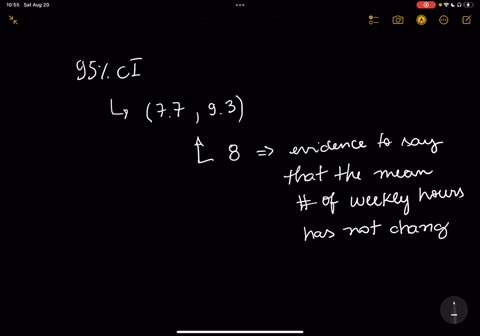 10:55 Sat Aug 20
95% CI
(7.7, 9.3)
8 ⇒ evidence to say
that the mean
# of weekly hours
has not chang